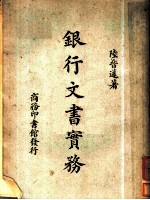 陸晉蘧著
銀行文書實務
商務印書館發行